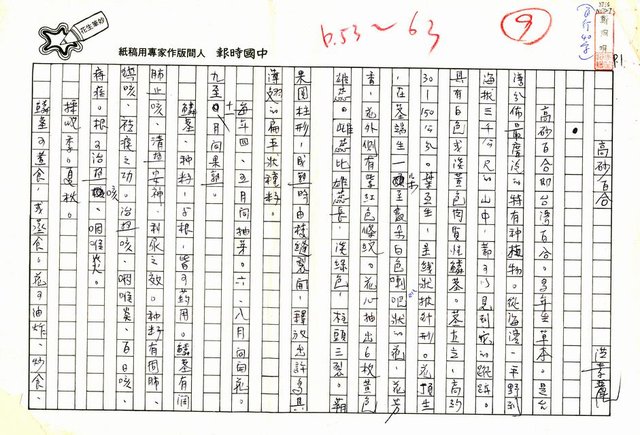 花生筆鈔
中國時報人間版作家專用稿紙
p.53～63
⑨
P1
高砂百合
高砂百合即台灣百合。多年生草本。是台
灣分佈最廣泛的特有種植物。從海濱、平野到
海拔三千公尺的山中，都可以見到它的蹤跡。
具有白色或淡黃色肉質性鱗莖。莖直立，高約
30~150公分。葉互生，呈線狀披針形。花頂生
，在莖端生一至數朵白色喇叭狀的花，花芳
香，花外側有紫紅色條紋。花心抽出6枚黃色
雄蕊。雌蕊比雄蕊長，淡綠色，柱頭三裂。蒴
果圓柱形，成熟時由稜縫裂開，釋放出許多具
薄翅的扁平狀種籽。
每年四、五月間抽芽。六、八月間開花。
九至十月間果熟。
鱗莖、種籽、與根，皆可药用。鱗莖有潤
肺止咳、清熱安神、利尿之效。種籽有潤肺、
鎮咳、袪痰之功。治咳、咽喉炎、百日咳、
根可治咳、咽喉炎。
採收季：夏秋。
鱗莖可煮食，或蒸食。花可油炸、炒食、